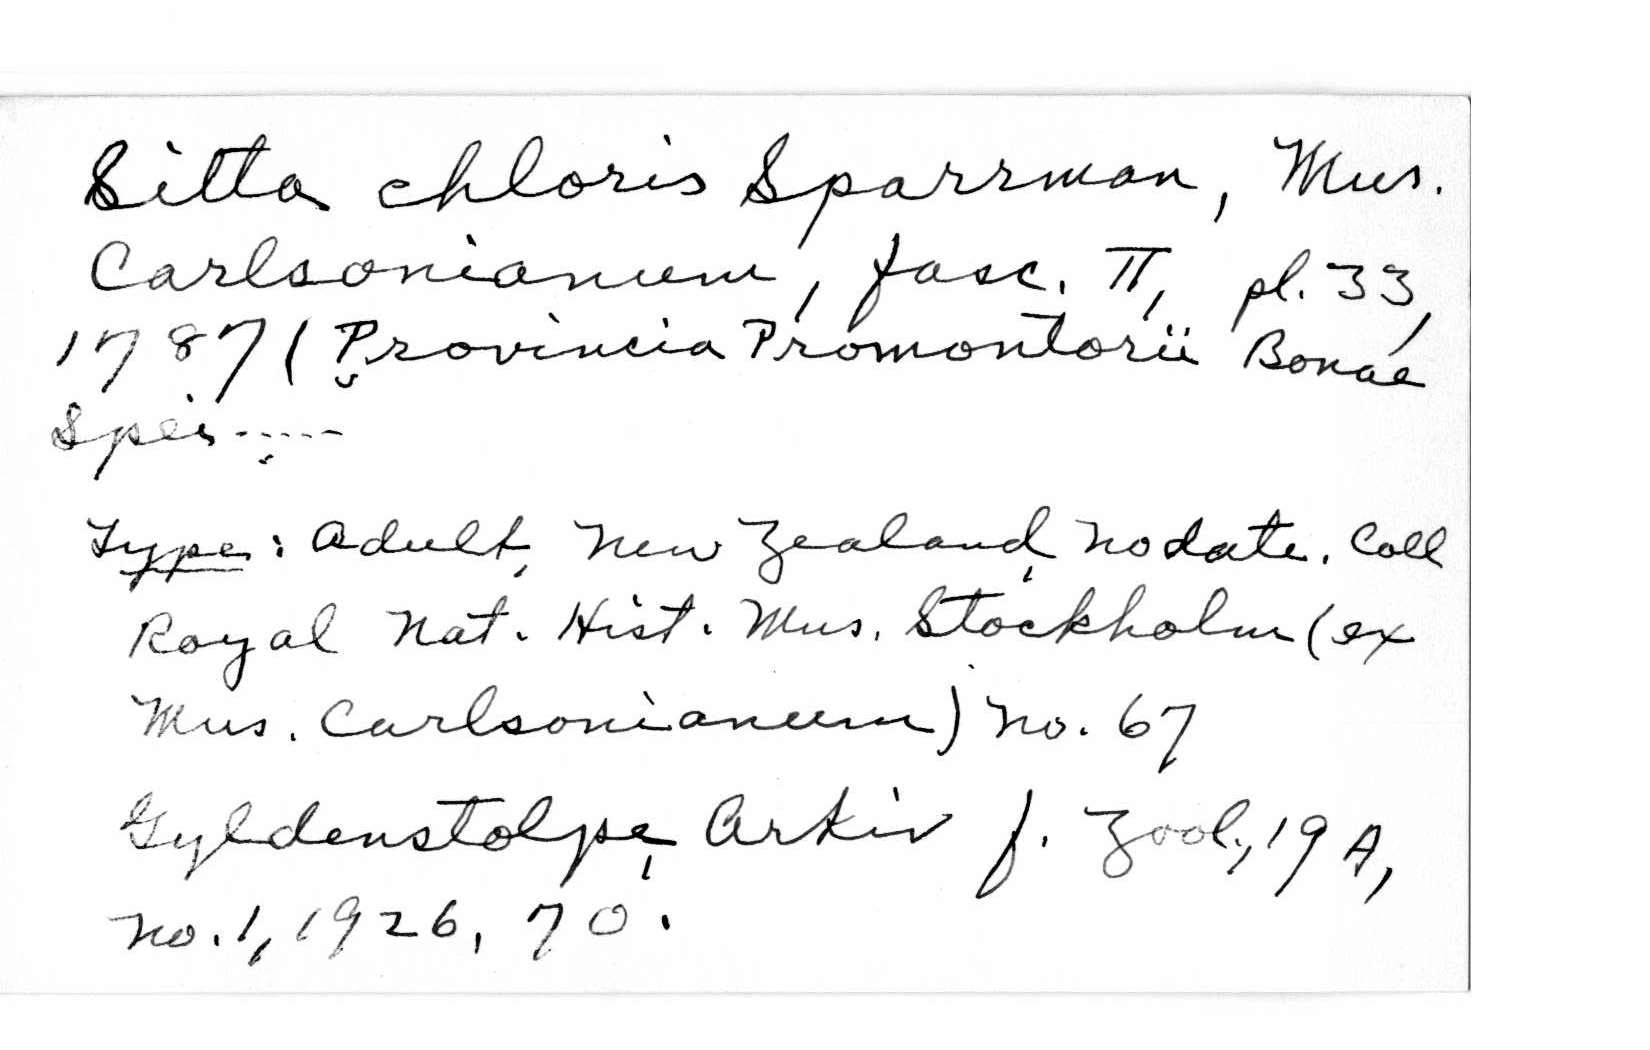 Sitta chloris Sparrman, Mus.
Carlsonianum, fasc. II, pl. 33,
1787 (Provincia Promontorii Bonae
Spei.....
Type: Adult, New Zealand, no date. Coll
Royal Nat. Hist. Mus. Stockholm (ex
Mus. Carlsonianum) no. 67
Gyldenstolpe, Arkiv f. Zool., 19 A,
no. 1, 1926, 70.